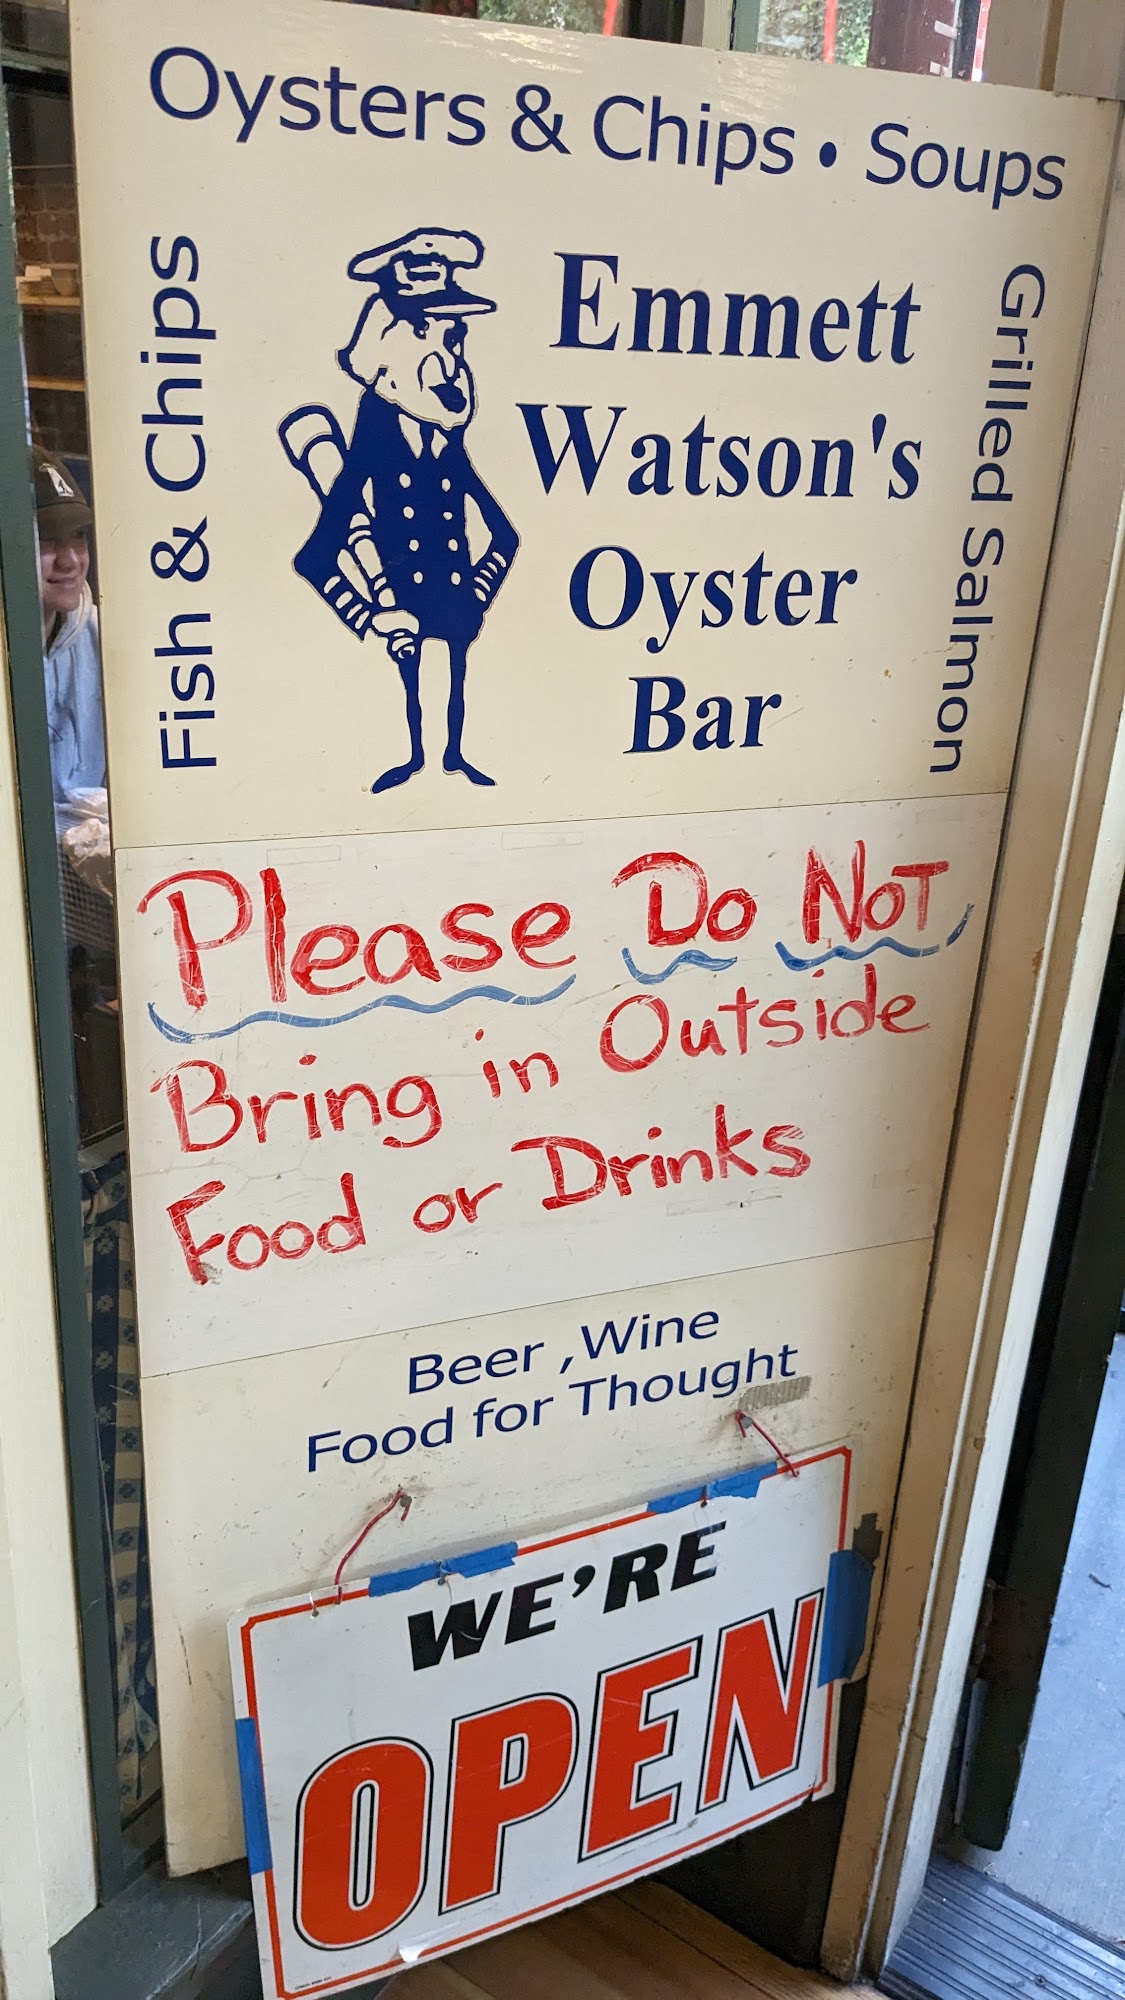 Oysters & Chips • Soups
Fish & Chips
Emmett
Watson's
Oyster
Bar
Grilled Salmon
Please Do NOT
Bring in Outside
Food or Drinks
Beer , Wine
Food for Thought
WE'RE
OPEN